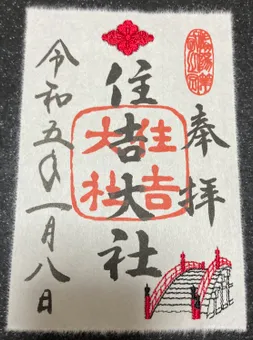 奉拝
住吉大社
住吉大社
令和五年一月八日